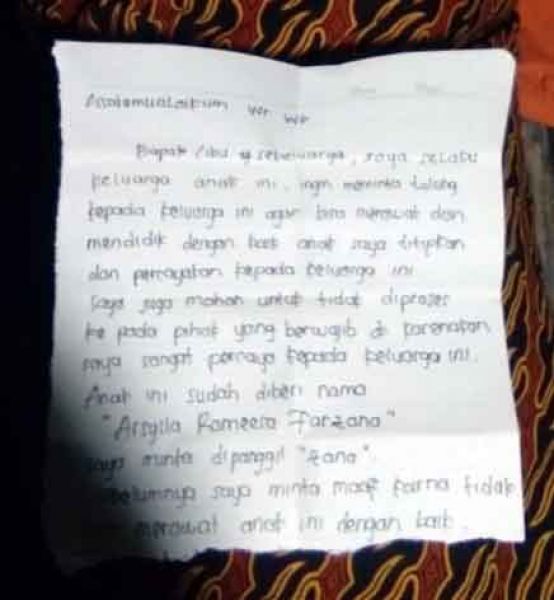 Assalamualaikum wr wb
Bapak / ibu sekeluarga, saya selaku
keluarga anak ini, ingin meminta tolong
kepada keluarga ini agar bisa merawat dan
mendidik dengan baik anak saya titipkan
dan percayakan kepada keluarga ini
saya juga mohon untuk tidak diproses
ke pada pihak yang berwajib di karenakan
saya sangat percaya kepada keluarga ini.
Anak ini sudah diberi nama
"Arsyila Rameera Farzana"
saya minta dipanggil "zana".
sebelumnya saya minta maaf karna tidak
merawat anak ini dengan baik.